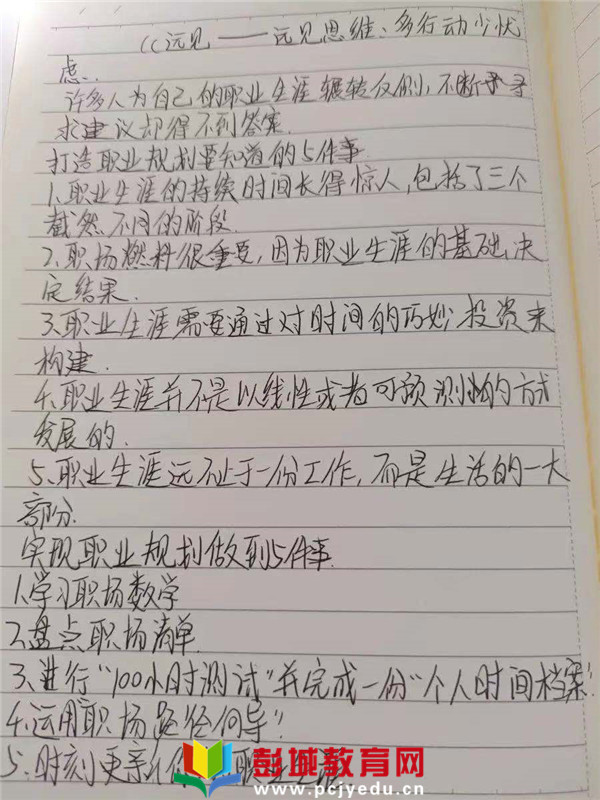 《远见——远见思维、多行动少忧
虑..
许多人为自己的职业生涯辗转反侧,不断寻
求建议却得不到答案.
打造职业规划要知道的5件事
1.职业生涯的持续时间长得惊人,包括了三个
截然不同的阶段.
2.职场燃料很重要,因为职业生涯的基础决
定结果.
3.职业生涯需要通过对时间的巧妙投资来
构建.
4.职业生涯并不是以线性或者可预测的方式
发展的.
5.职业生涯远不止于一份工作,而是生活的一大
部分.
实现职业规划做到5件事.
1.学习职场数学
2.盘点职场清单.
3.进行“100小时测试”并完成一份“个人时间档案”
4.运用职场路径向导”
5.时刻更新你 职
彭城教育网
www.pcjyedu.cn